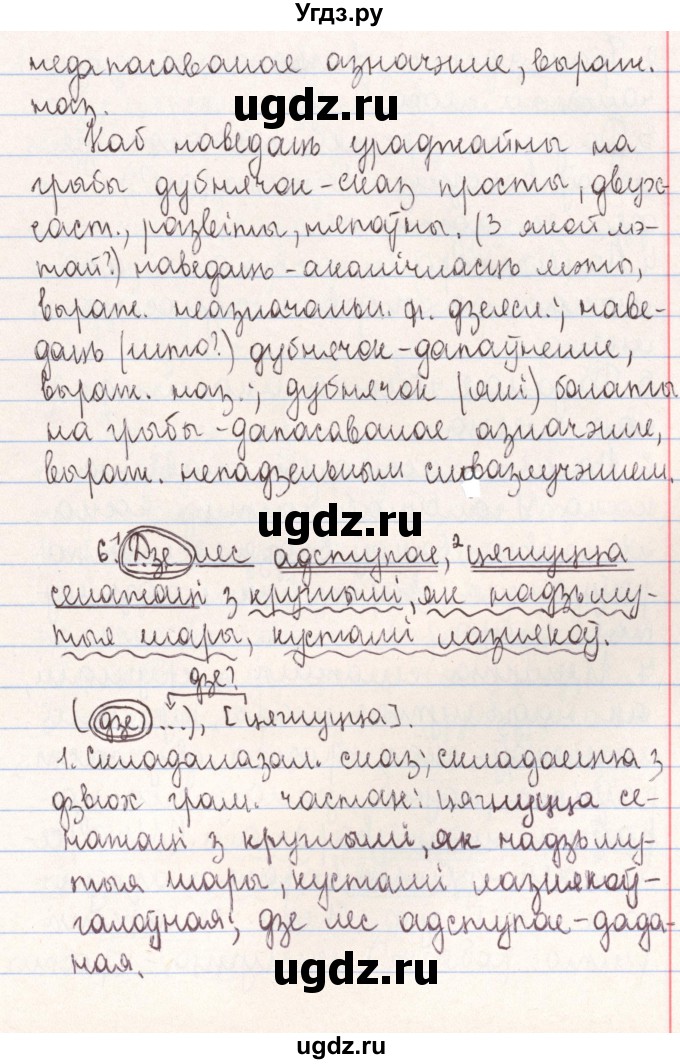 Угдз.ру
недапасаванае азначэнне, выраж.
наз.
Каб наведаць ураджайны на
грыбы дубнячок – сказ просты, двух-
саст., развіты, няпоўны. (З якой мэ-
тай?) наведаць – акалічнасць мэты,
выраж. неазначальн. ф. дзеясл.; наве-
даць (што?) дубнячок – дапаўненне,
выраж. наз.; дубнячок (які) багаты
на грыбы – дапасаванае азначэнне,
выраж. непадзельным словазлучэннем.
6. ¹Дзе лес адступае, ²цягнуцца
сенажаці з круглымі, як надзьму-
тыя шары, кустамі лазнякоў.
дзе?
(дзе ...), [цягнуцца].
1. Складаназал. сказ; складаецца з
дзвюх грам. частак: цягнуцца се-
нажаці з круглымі, як надзьму-
тыя шары, кустамі лазнякоў –
галоўная; дзе лес адступае – дада-
ная.
ugdz.ru
ugdz.ru
ugdz.ru
ugdz.ru
ugdz.ru